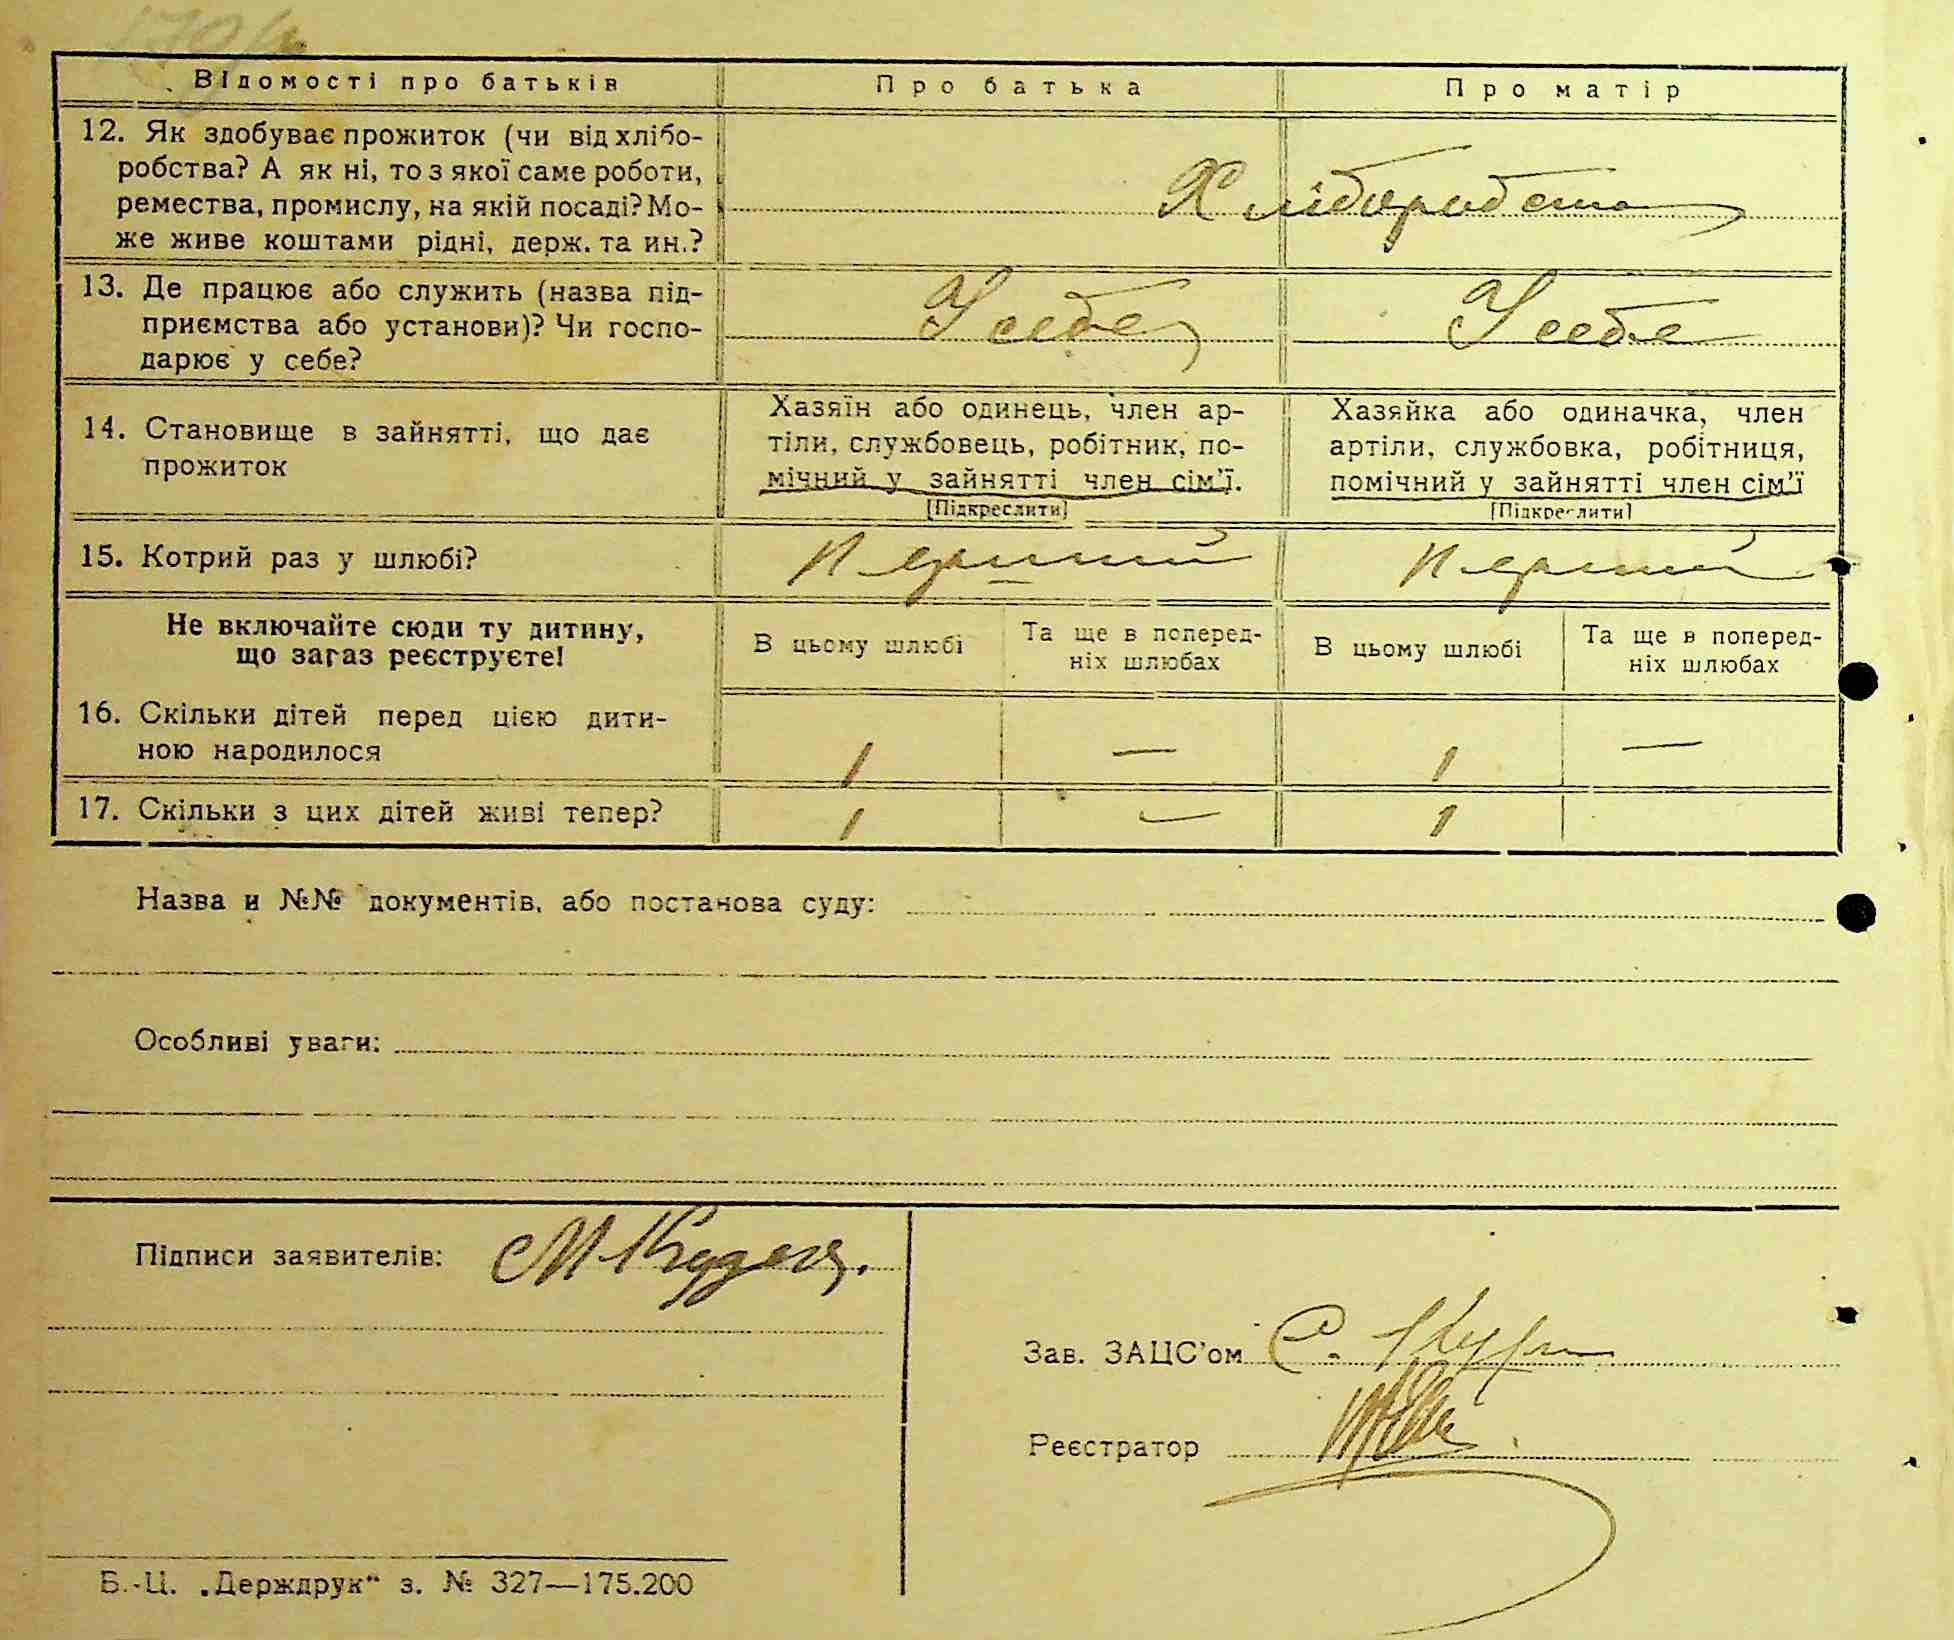 Відомості про батьків
Про батька
Про матір
12. Як здобуває прожиток (чи від хлібо-
робства? А як ні, то з якої саме роботи,
ремества, промислу, на якій посаді? Мо-
же живе коштами рідні, держ. та ин.?
Хліборобство
13. Де працює або служить (назва під-
приємства або установи)? Чи госпо-
дарює у себе?
У себе
У себе
14. Становище в зайнятті, що дає
прожиток
Хазяїн або одинець, член ар-
тіли, службовець, робітник, по-
мічний у зайнятті член сім'ї.
[Підкреслити]
Хазяйка або одиначка, член
артіли, службовка, робітниця,
помічний у зайнятті член сім'ї
[Підкреслити]
15. Котрий раз у шлюбі?
Перший
Перший
Не включайте сюди ту дитину,
що зараз реєструєте!
В цьому шлюбі
Та ще в поперед-
ніх шлюбах
В цьому шлюбі
Та ще в поперед-
ніх шлюбах
16. Скільки дітей перед цією дити-
ною народилося
1 — 1 —
17. Скільки з цих дітей живі тепер?
1 — 1
Назва и №№ документів, або постанова суду:
Особливі уваги:
Підписи заявителів:
Зав. ЗАЦС'ом
Реєстратор
Б.-Ц. „Держдрук" з. № 327—175.200